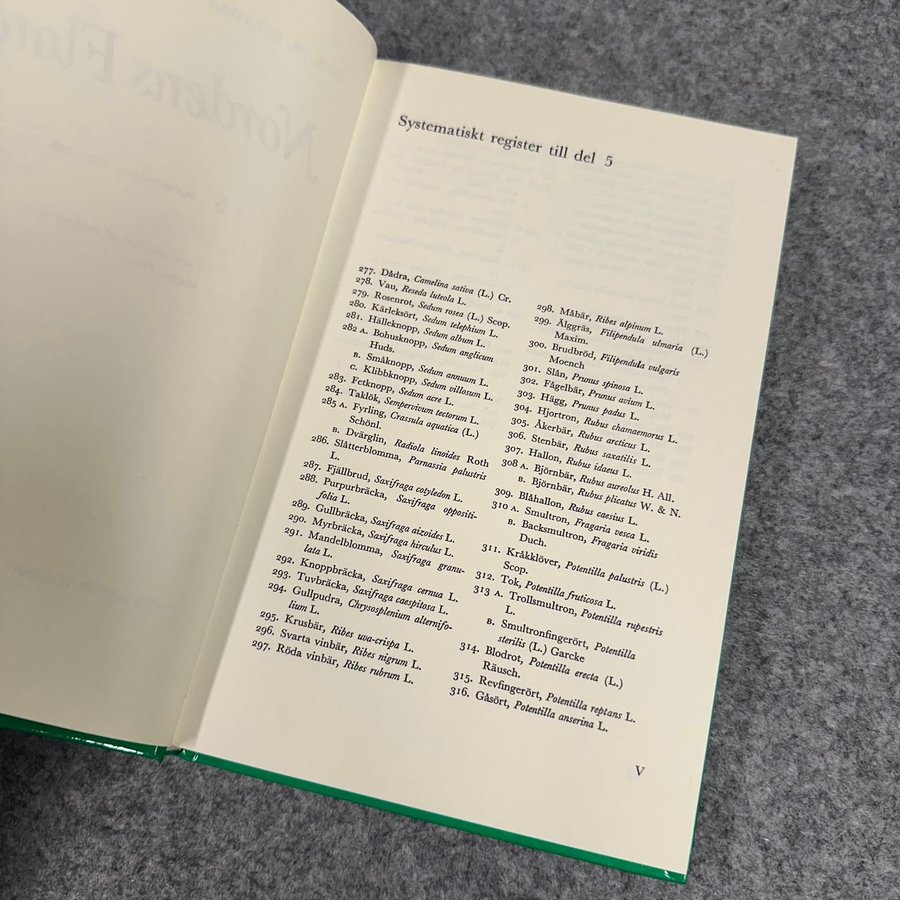 Nordens Flora
5
Systematiskt register till del 5
277. Dådra, Camelina sativa (L.) Cr.
278. Vau, Reseda luteola L.
279. Rosenrot, Sedum rosea (L.) Scop.
280. Kärleksört, Sedum telephium L.
281. Hälleknopp, Sedum album L.
282 A. Bohusknopp, Sedum anglicum
Huds.
B. Småknopp, Sedum annuum L.
C. Klibbknopp, Sedum villosum L.
283. Fetknopp, Sedum acre L.
284. Taklök, Sempervivum tectorum L.
285 A. Fyrling, Crassula aquatica (L.)
Schönl.
B. Dvärglin, Radiola linoides Roth
286. Slåtterblomma, Parnassia palustris
L.
287. Fjällbrud, Saxifraga cotyledon L.
288. Purpurbräcka, Saxifraga oppositi-
folia L.
289. Gullbräcka, Saxifraga aizoides L.
290. Myrbräcka, Saxifraga hirculus L.
291. Mandelblomma, Saxifraga granu-
lata L.
292. Knoppbräcka, Saxifraga cernua L.
293. Tuvbräcka, Saxifraga caespitosa L.
294. Gullpudra, Chrysosplenium alternifo-
lium L.
295. Krusbär, Ribes uva-crispa L.
296. Svarta vinbär, Ribes nigrum L.
297. Röda vinbär, Ribes rubrum L.
298. Måbär, Ribes alpinum L.
299. Älggräs, Filipendula ulmaria (L.)
Maxim.
300. Brudbröd, Filipendula vulgaris
Moench
301. Slån, Prunus spinosa L.
302. Fågelbär, Prunus avium L.
303. Hägg, Prunus padus L.
304. Hjortron, Rubus chamaemorus L.
305. Åkerbär, Rubus arcticus L.
306. Stenbär, Rubus saxatilis L.
307. Hallon, Rubus idaeus L.
308 A. Björnbär, Rubus aureolus H. All.
B. Björnbär, Rubus plicatus W. & N.
309. Blåhallon, Rubus caesius L.
310 A. Smultron, Fragaria vesca L.
B. Backsmultron, Fragaria viridis
Duch.
311. Kråkklöver, Potentilla palustris (L.)
Scop.
312. Tok, Potentilla fruticosa L.
313 A. Trollsmultron, Potentilla rupestris
L.
B. Smultronfingerört, Potentilla
sterilis (L.) Garcke
314. Blodrot, Potentilla erecta (L.)
Räusch.
315. Revfingerört, Potentilla reptans L.
316. Gåsört, Potentilla anserina L.
V